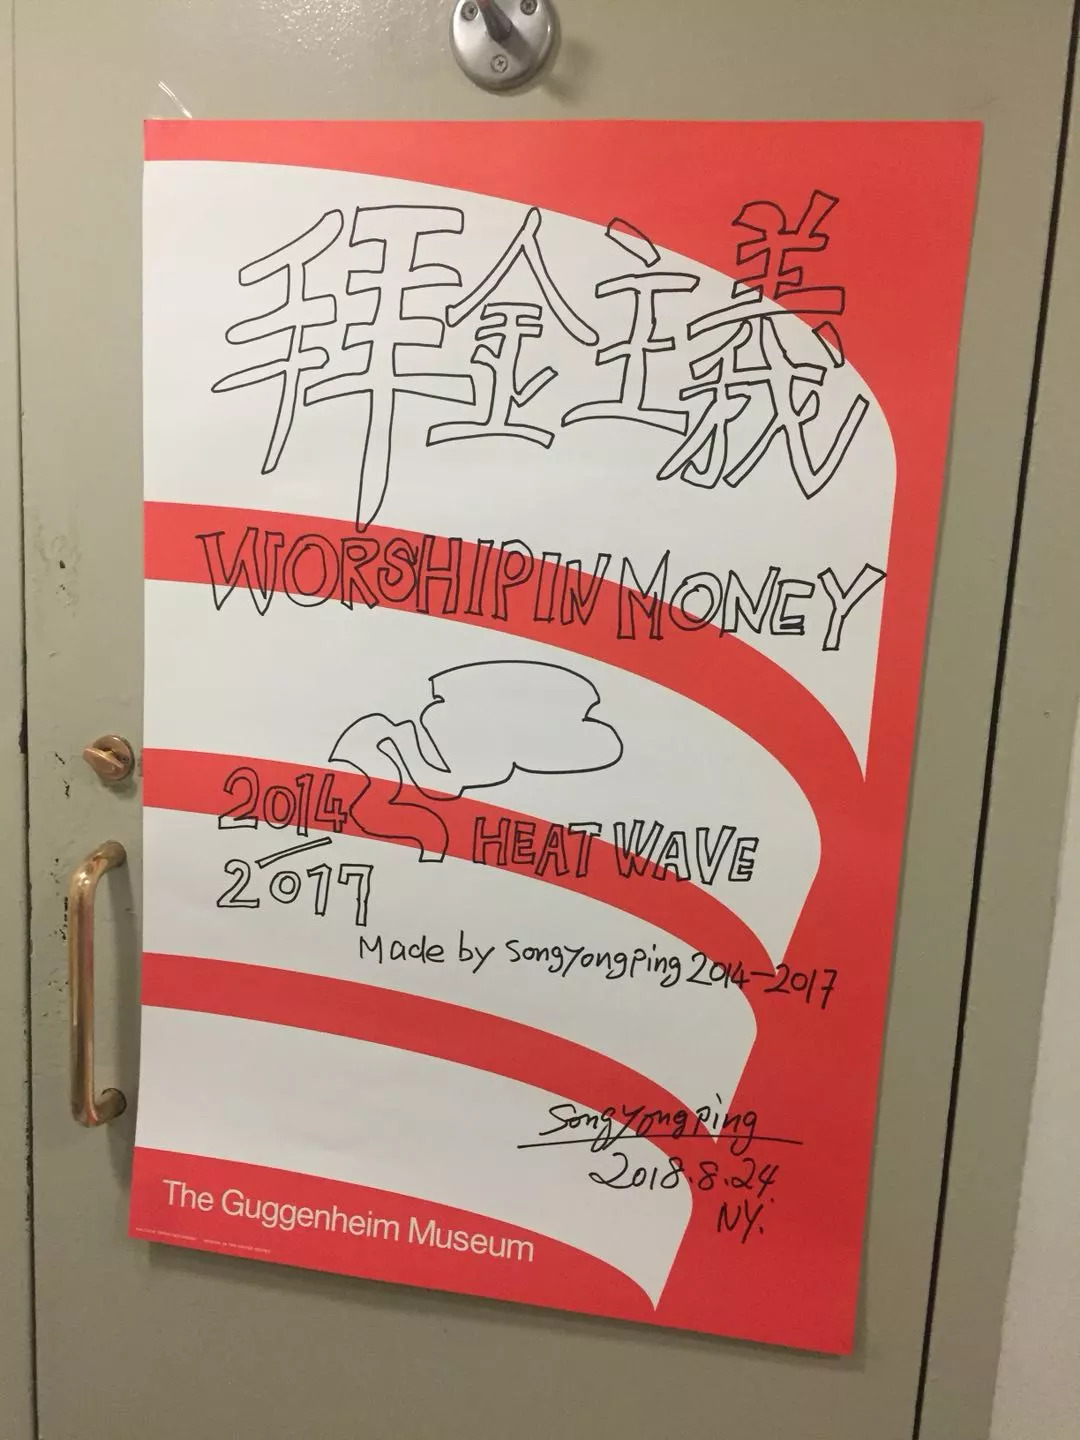 拜金主義
WORSHIP IN MONEY
2014
HEAT WAVE
2017
Made by SongYongPing 2014-2017
SongYongping
2018.8.24
NY.
The Guggenheim Museum